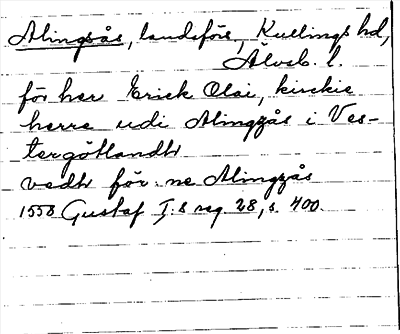 Alingsås, landsförs, Kullings hd,
Älvsb. l.
för her Erick Olai, kirckie
herre udi Alingzås i Ves-
tergötlandh
vedh för:ne Alingzås
1558 Gustaf I:s reg. 28, s. 400.